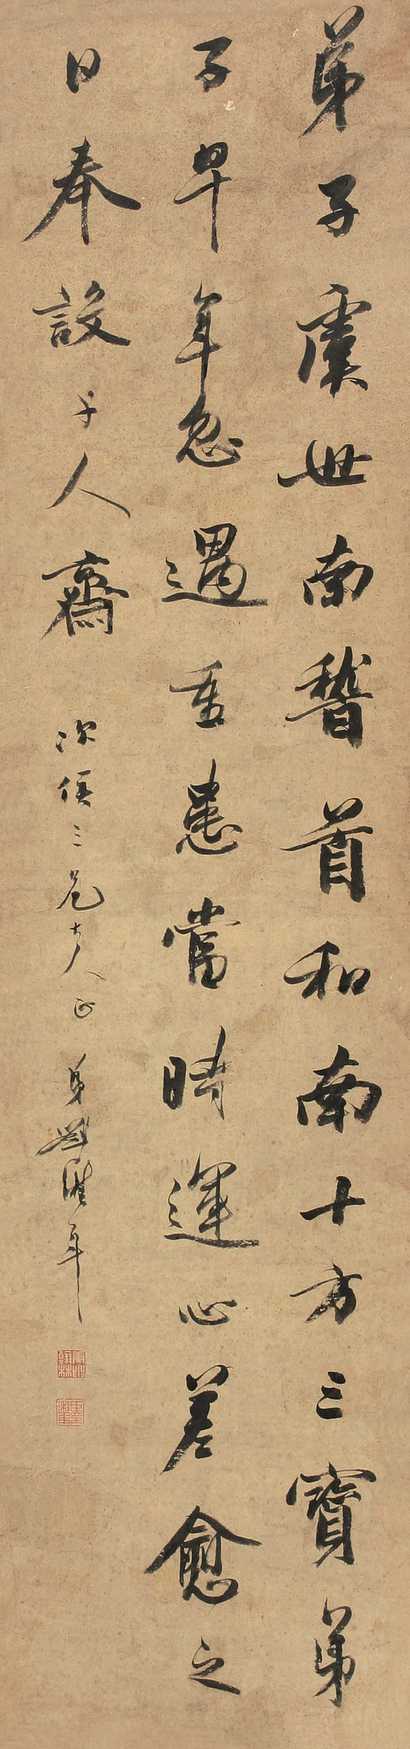 弟子虞世南稽首和南十方三寶弟
子早年忽遇重患當時運心差愈之
日奉設千人齋
三兄大人正 弟